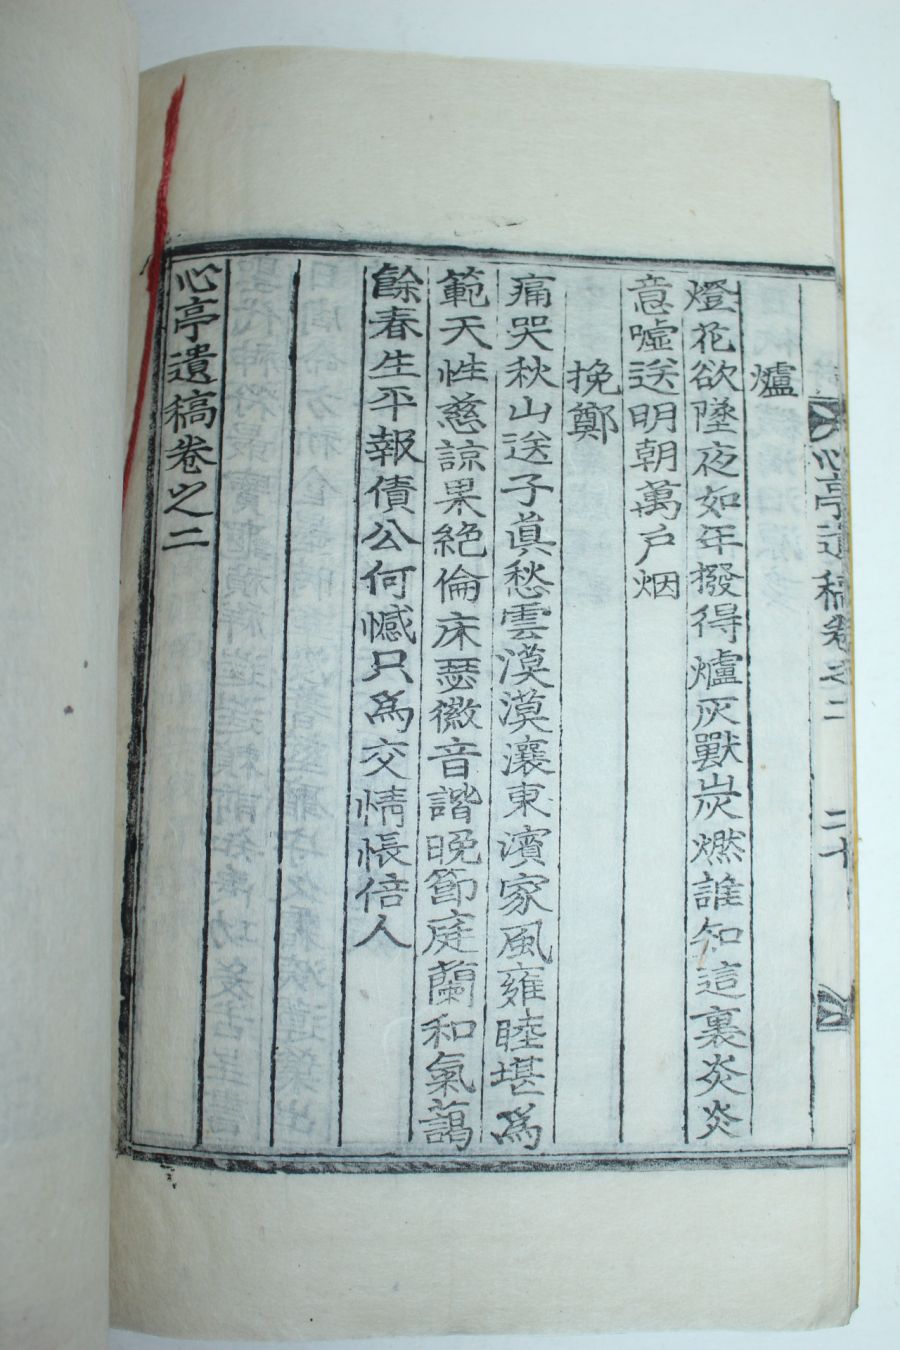 心亭遺稿卷之二
二十
爐
燈花欲墜夜如年撥得爐灰獸炭燃誰知這裏炎炎
意噓送明朝萬戶烟
挽鄭
痛哭秋山送子眞愁雲漠漠瀼東濱家風雍睦堪爲
範天性慈諒果絕倫床瑟徽音諧晚節庭蘭和氣藹
餘春生平報債公何憾只爲交情悵倍人
心亭遺稿卷之二